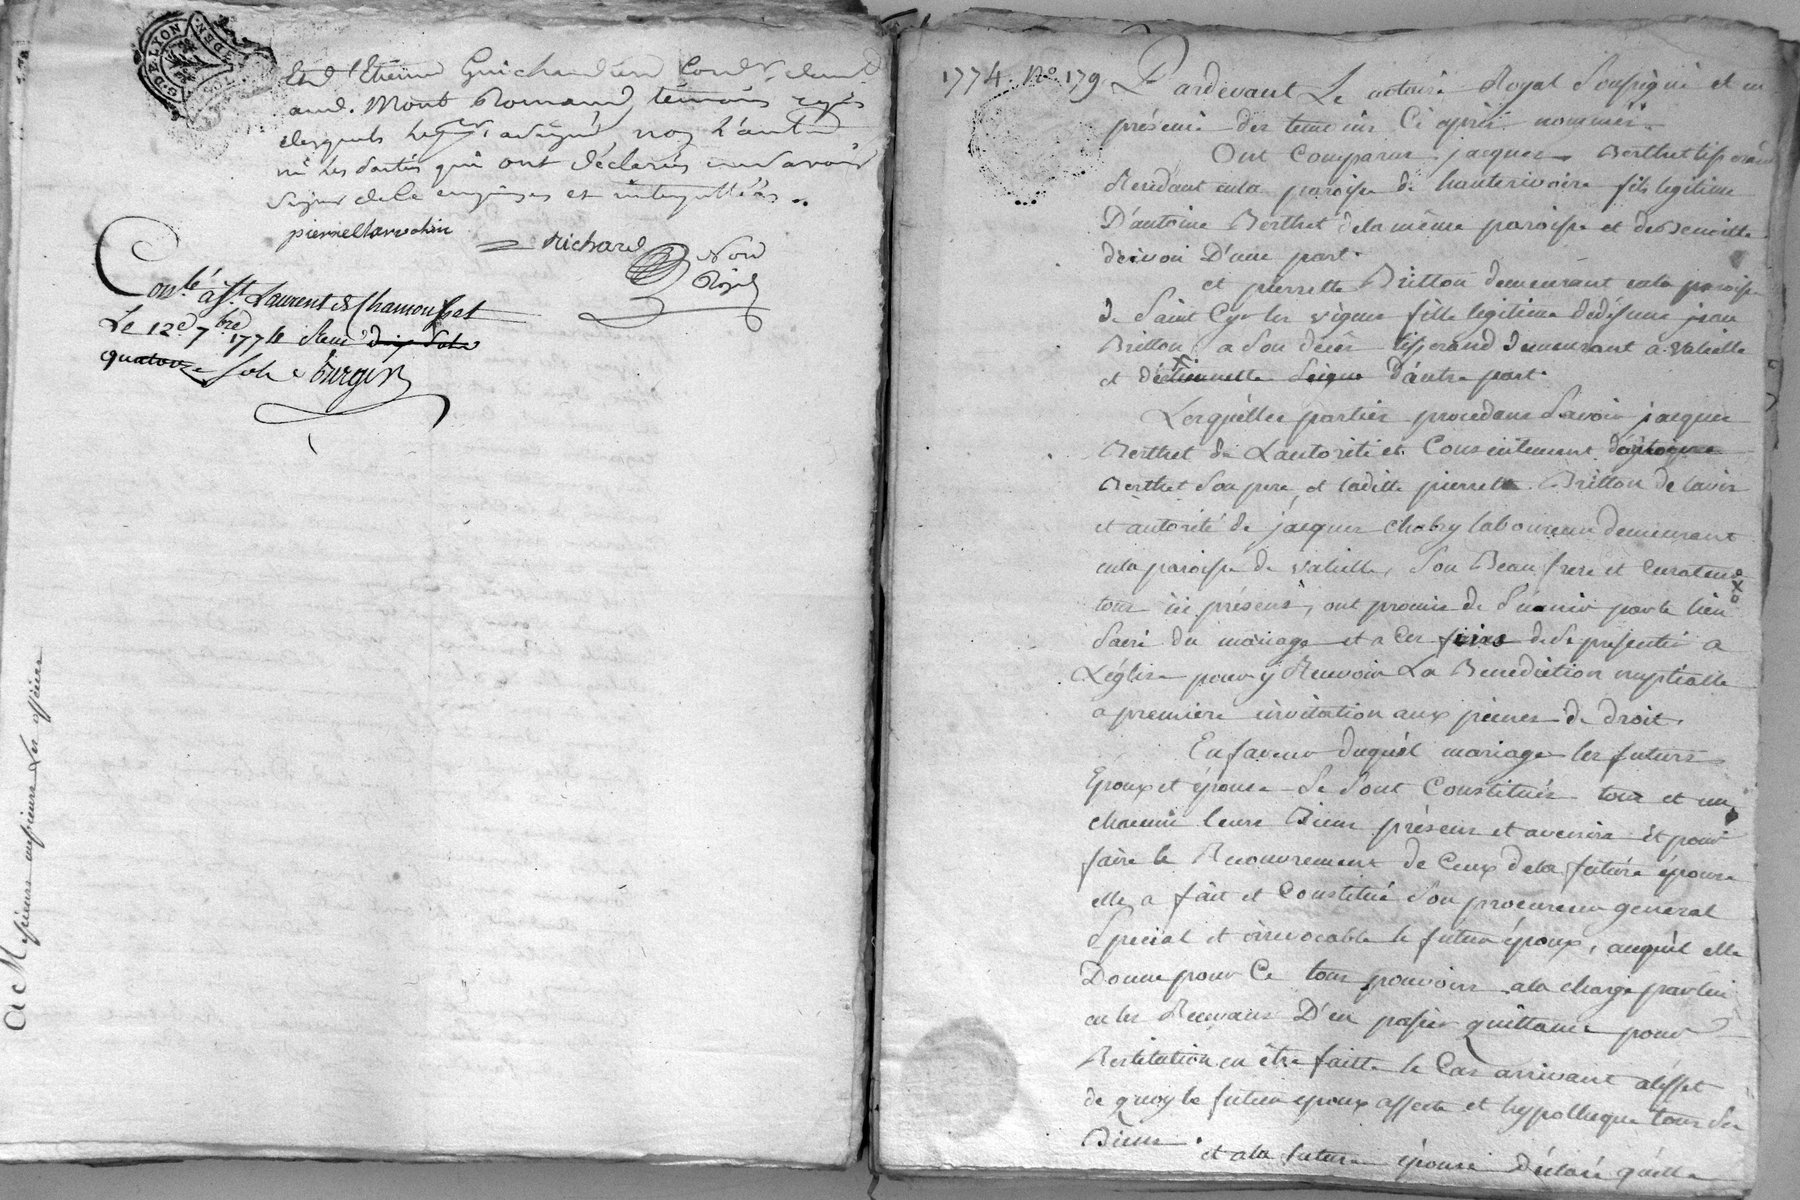 G. DE LYON
Etienne Guichard
Mont Romand, témoins
lesquels non l'autre
ni les parties qui ont déclarés ne savoir
signer de ce enquises et interpellées.
Richard Nore
Royal
Conlé à St. Laurent de Chamousset
Le 12e 7bre 1774 Reçu dix sols
quatorze sols
A Messieurs messieurs Les officiers
1774. No. 179
Pardevant Le notaire Royal Soussigné et en
présence des temoins Ci après nommés.
Ont Comparus jacques Berthet tisserand
Residant en la paroisse de hauterivoire fils legitime
D'antoine Berthet de la même paroisse et de Benoitte
D'une part.
et pierrette Britton demeurant en la paroisse
de Saint Cyr les vignes fille legitime de defunt jean
Britton, a Son décès tisserand demeurant a Valeille
et d'Etiennette Seigne D'autre part.
Lesquelles parties procedans Savoir jacques
Berthet de L'autorité et Consentement d'antoine
Berthet Son pere, et ladite pierrette Britton de l'avis
et autorité de jacques Chaby laboureur demeurant
en la paroisse de Valeille, Son Beau frere et Curateur
tous ici présens, ont promis de S'unir par le lien
Sacré du mariage et a Ces fins de Se presenter a
L'église pour y Recevoir La Benediction nuptialle
a première invitation aux peines de droit.
En faveur duquel mariage les futurs
Epoux et épouse Se Sont Constitués tous et un
chacuns leurs Biens présens et avenirs Et pour
faire le Recouvrement de Ceux de la future épouse
elle a fait et Constitué Son procureur general
Special et irrevocable le futur époux, auquel elle
Donne pour Ce tous pouvoirs a la charge par lui
en les Recevans D'en passer quittance pour
Restitution en être faitte le Cas arrivant a l'effet
de quoy le futur époux affecte et hypotheque tous Ses
Biens.
et a la future épouse Déclaré qu'elle